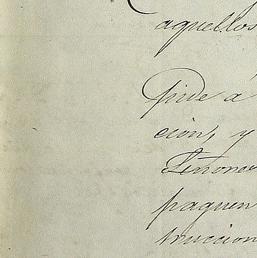 aquellos
Pide á
cion, y
Señores
paguen
truccion